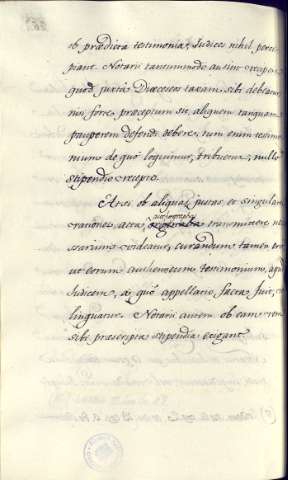 ob prædicta testimonia, Iudices nihil perci
piant. Notarii tantummodo ausint recipere
quod juxta Dioeceseos taxam sibi debtatur
nisi forte præceptum sit, aliquem tanquam
pauperem defendi debere; tum enim testimo
nium de quo loquimur, tribuetur, nullo
stipendio recepto.
At si ob aliquas justas, et singulares
rationes, acta autographa transmittere ne
cessarium videatur, curandum tamen erit
ut eorum authenticum testimonium, apud
Iudicem, a quo appellatio facta fuit, re
linquatur. Notarii autem ob eam rem
sibi præscripta stipendia exigant.